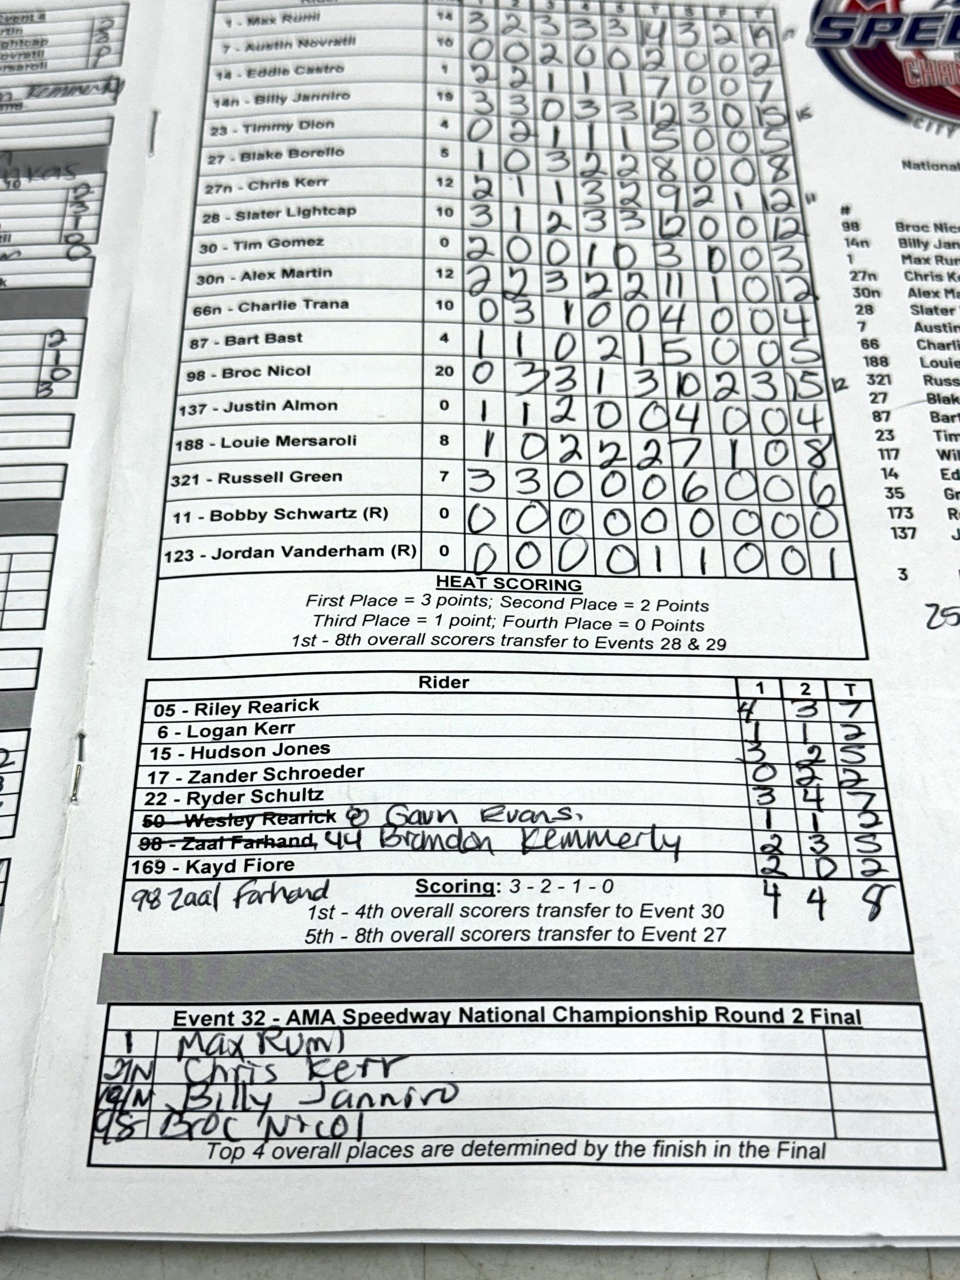 Rider 1 2 3 4 5 T S F T
1 - Max Rumi 14 3 2 3 3 3 14 3 2 19
7 - Austin Novratil 10 0 0 2 0 0 2 0 0 2
14 - Eddie Castro 1 2 2 1 1 1 7 0 0 7
14n - Billy Janniro 19 3 3 0 3 3 12 3 0 15 15
23 - Timmy Dion 4 0 2 1 1 1 5 0 0 5
27 - Blake Borello 5 1 0 3 2 2 8 0 0 8
27n - Chris Kerr 12 2 1 1 3 2 9 2 1 12 11
28 - Slater Lightcap 10 3 1 2 3 3 12 0 0 12
30 - Tim Gomez 0 2 0 0 1 0 3 0 0 3
30n - Alex Martin 12 2 2 3 2 2 11 1 0 12
66n - Charlie Trana 10 0 3 1 0 0 4 0 0 4
87 - Bart Bast 4 1 1 0 2 1 5 0 0 5
98 - Broc Nicol 20 0 3 3 1 3 10 2 3 15 12
137 - Justin Almon 0 1 1 2 0 0 4 0 0 4
188 - Louie Mersaroli 8 1 0 2 2 2 7 1 0 8
321 - Russell Green 7 3 3 0 0 0 6 0 0 6
11 - Bobby Schwartz (R) 0 0 0 0 0 0 0 0 0 0
123 - Jordan Vanderham (R) 0 0 0 0 0 1 1 0 0 1
HEAT SCORING
First Place = 3 points; Second Place = 2 Points
Third Place = 1 point; Fourth Place = 0 Points
1st - 8th overall scorers transfer to Events 28 & 29
Rider 1 2 T
05 - Riley Rearick 4 3 7
6 - Logan Kerr 1 1 2
15 - Hudson Jones 3 2 5
17 - Zander Schroeder 0 2 2
22 - Ryder Schultz 3 4 7
50 - Wesley Rearick 8 Gavn Evans. 1 1 2
98 - Zaal Farhand, 44 Brandon Kemmerly 2 3 5
169 - Kayd Fiore 2 0 2
98 Zaal Farhand Scoring: 3 - 2 - 1 - 0 4 4 8
1st - 4th overall scorers transfer to Event 30
5th - 8th overall scorers transfer to Event 27
Event 32 - AMA Speedway National Championship Round 2 Final
1 Max Rumi
27N Chris Kerr
14N Billy Janniro
98 Broc Nicol
Top 4 overall places are determined by the finish in the Final
SPEE
CHA
CITY
National
#
98 Broc Nic
14n Billy Jan
1 Max Rum
27n Chris K
30n Alex Ma
28 Slater
7 Austin
66 Charli
188 Louie
321 Russ
27 Blak
87 Bart
23 Tim
117 Wil
14 Ed
35 Gr
173 R
137 J
3
25